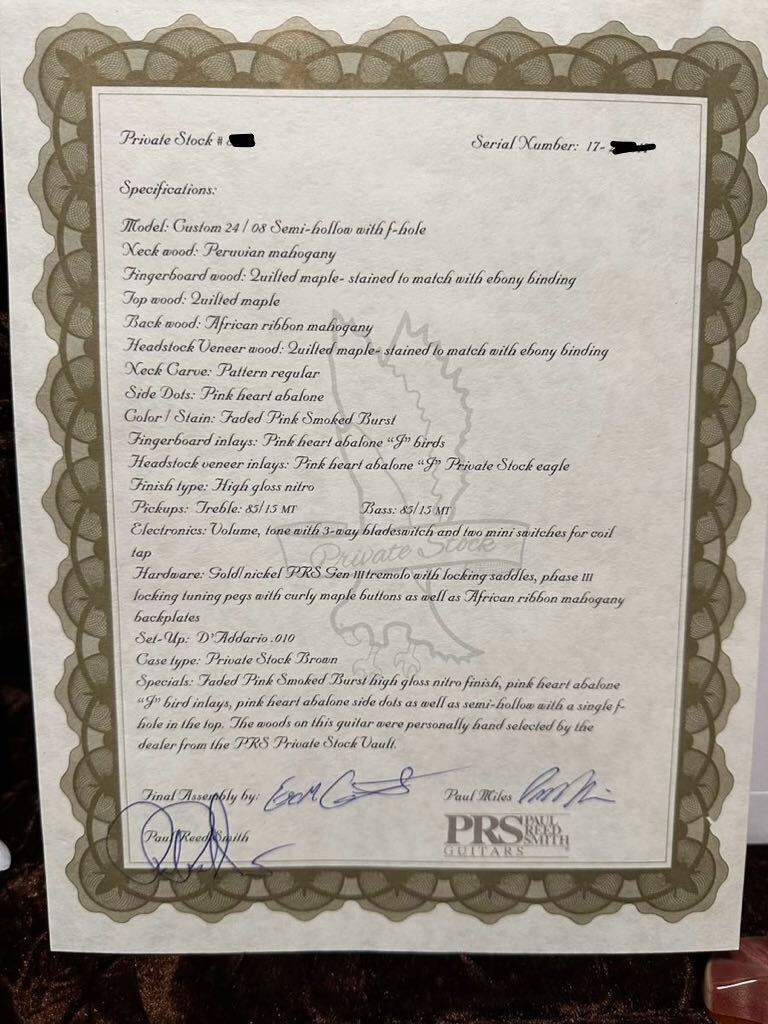 Private Stock #
Serial Number: 17-
Specifications:
Model: Custom 24 / 08 Semi-hollow with f-hole
Neck wood: Peruvian mahogany
Fingerboard wood: Quilted maple- stained to match with ebony binding
Top wood: Quilted maple
Back wood: African ribbon mahogany
Headstock Veneer wood: Quilted maple- stained to match with ebony binding
Neck Carve: Pattern regular
Side Dots: Pink heart abalone
Color / Stain: Faded Pink Smoked Burst
Fingerboard inlays: Pink heart abalone "J" birds
Headstock veneer inlays: Pink heart abalone "J" Private Stock eagle
Finish type: High gloss nitro
Pickups: Treble: 85/15 MT Bass: 85/15 MT
Electronics: Volume, tone with 3-way bladeswitch and two mini switches for coil
tap
Private Stock
Hardware: Gold/nickel PRS Gen III tremolo with locking saddles, phase III
locking tuning pegs with curly maple buttons as well as African ribbon mahogany
backplates
Set-Up: D'Addario .010
Case type: Private Stock Brown
Specials: Faded Pink Smoked Burst high gloss nitro finish, pink heart abalone
"J" bird inlays, pink heart abalone side dots as well as semi-hollow with a single f-
hole in the top. The woods on this guitar were personally hand selected by the
dealer from the PRS Private Stock Vault.
Final Assembly by:
Paul Miles
Paul Reed Smith
PRS PAUL
REED
SMITH
GUITARS